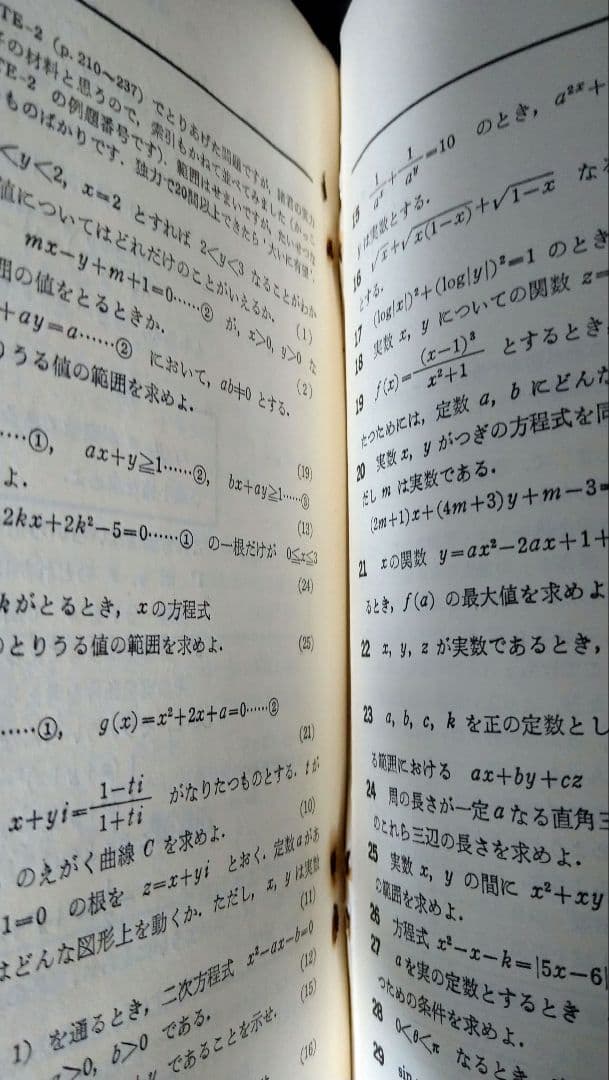 TE-2 (p.210～237) でとりあげた問題ですが，諸君の実力
の材料と思うので，索引もかねて並べてみました (かっこ
TE-2 の例題番号です)．範囲はせまいですが，たいせつな
ものばかりです．独力で20問以上できたら‘大いに有望’．
<y<2, x=2 とすれば 2<y<3 なることがわか
値についてはどれだけのことがいえるか． (1)
mx-y+m+1=0……② が，x>0, y>0 な
囲の値をとるときか． (2)
+ay=a……② において，ab≠0 とする．
りうる値の範囲を求めよ．
(19)
……①， ax+y≧1……②， bx+ay≧1……③
よ． (13)
2kx+2k²-5=0……① の一根だけが 0≦x≦3
(24)
kがとるとき，xの方程式
とりうる値の範囲を求めよ． (25)
……①， g(x)=x²+2x+a=0……②
(21)
x+yi=\frac{1-ti}{1+ti} がなりたつものとする．tが
のえがく曲線Cを求めよ． (10)
1=0 の根を z=x+yi とおく．定数aがあ
はどんな図形上を動くか．ただし，x, yは実数
(11)
1) を通るとき，二次方程式 x²-ax-b=0
(12)
>0, b>0 である． (15)
y であることを示せ． (16)
15 \frac{1}{a^x}+\frac{1}{a^y}=10 のとき，a^{2x}+
yは実数とする．
16 √x+√x(1-x)+√1-x な
とする．
17 (log|x|)²+(log|y|)²=1 のとき
18 実数x, yについての関数 z=
19 f(x)=\frac{(x-1)³}{x²+1} とするとき
たつためには，定数a, bにどんな
20 実数x, yがつぎの方程式を同
だしmは実数である．
(2m+1)x+(4m+3)y+m-3=
21 xの関数 y=ax²-2ax+1+
るとき，f(a) の最大値を求めよ
22 x, y, zが実数であるとき，
23 a, b, c, k を正の定数とし
る範囲における ax+by+cz
24 周の長さが一定aなる直角三
のこれら三辺の長さを求めよ．
25 実数x, yの間に x²+xy
の範囲を求めよ．
26 方程式 x²-x-k=|5x-6|
27 aを実の定数とするとき
つための条件を求めよ．
28 0<θ<π なるとき，
29 sin